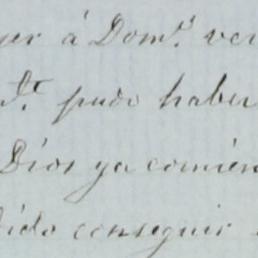 á Dom.º ver
pudo haber
Dios ya comien
conseguir